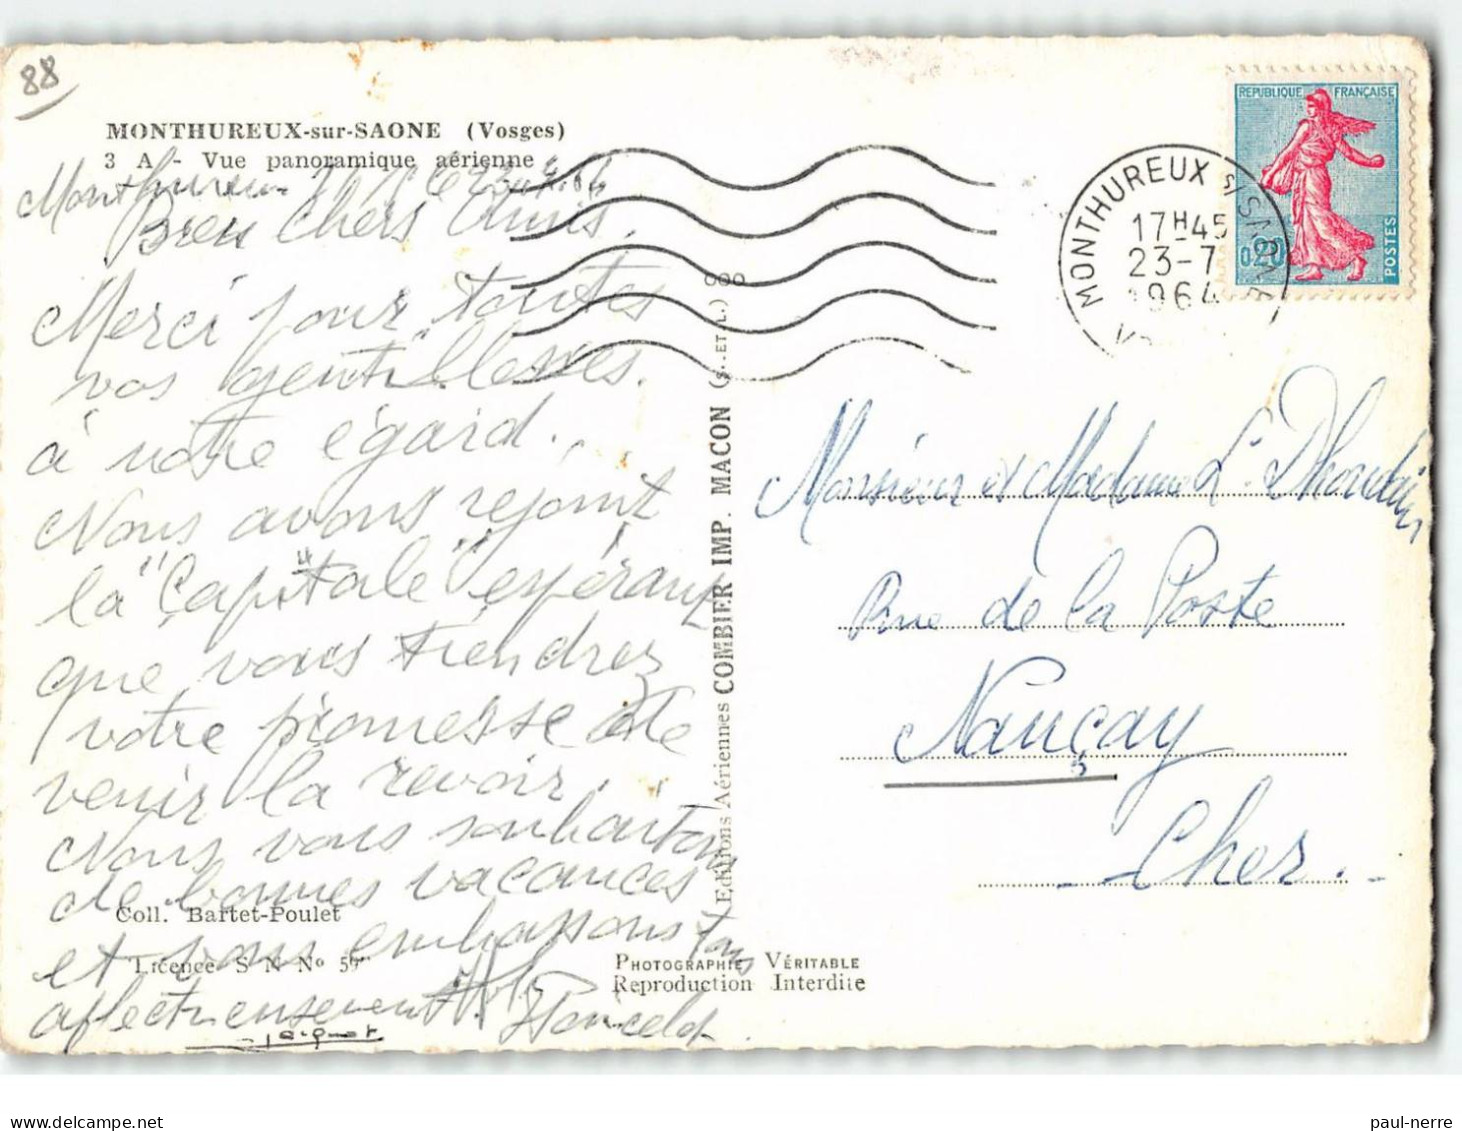 88
MONTHUREUX-sur-SAONE (Vosges)
3 A - Vue panoramique aérienne
Monthureux
Bien Chers Amis.
Merci pour toutes
vos gentillesses
à notre égard..
Nous avons rejoint
la "Capitale" espérant
que vous tiendrez
votre promesse de
venir la revoir.
Nous vous souhaitons
de bonnes vacances
et vous embrassons tous
affectueusement
Jacquot
Coll. Bartet-Poulet
Licence S N No 59
Editions Aériennes COMBIER IMP. MACON (S.-ET-L.)
PHOTOGRAPHIE VÉRITABLE
Reproduction Interdite
REPUBLIQUE FRANÇAISE
0,20
POSTES
MONTHUREUX S/ SAONE
17H45
23-7
1964
Monsieur et Madame L. Dhoudain
Rue de la Poste
Nançay
Cher.
paul-nerre